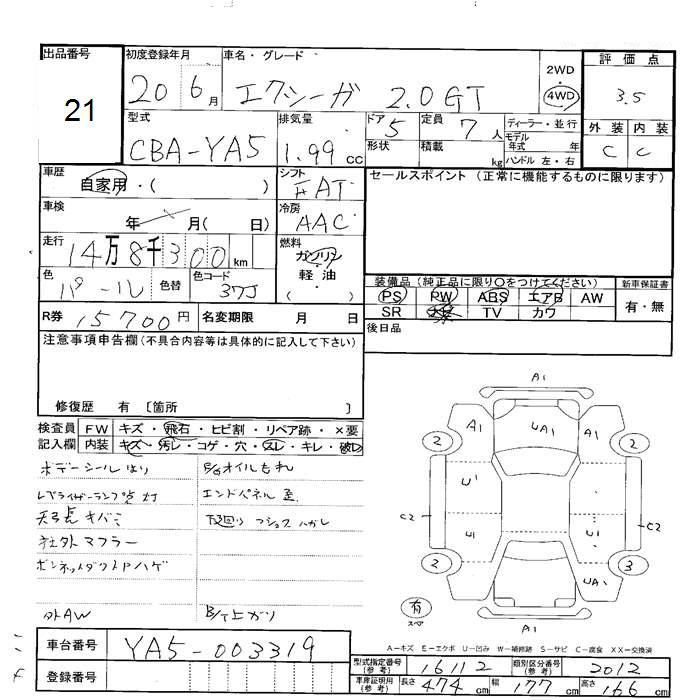 出品番号 初度登録年月 車名・グレード 評価点
21 20 6月 エクシーガ 2.0GT 2WD・4WD 3.5
型式 排気量 ドア 定員 ディーラー・並行 外装 内装
CBA-YA5 1.99cc 5 7人 モデル年式 年 C C
形状 積載 kg ハンドル 左・右
車歴 シフト セールスポイント(正常に機能するものに限ります)
自家用・( ) FAT
車検 年 月( 日) 冷房 AAC
走行 14万8千300km 燃料 ガソリン・軽油 ( )
色 パール 色替 色コード 37J
装備品(純正品に限り○をつけてください) 新車保証書
PS PW ABS エアB AW 有・無
SR TV カワ
R券 15700円 名変期限 月 日 後日品
注意事項申告欄(不具合内容等は具体的に記入して下さい)
修復歴 有 〔箇所 〕
検査員 FW キズ・飛石・ヒビ割・リペア跡・×要
記入欄 内装 キズ・汚レ・コゲ・穴・スレ・キレ・破レ
ボデーシールはり B/gオイルもれ
レベライザーランプ点灯 エンドパネル歪
天張キバミ 下廻り フショク ハガレ
社外マフラー
ボンネットダクトPハゲ
外AW
A1
A1 UA1 A1
2 2
U1
C2 U1 C2
2 3
UA1
有 スペア A1
A－キズ E－エクボ U－凹み W－補修跡 S－サビ C－腐食 XX－交換済
車台番号 YA5-003319
登録番号
型式指定番号(参考) 16112 類別区分番号(参考) 2012
車庫証明用(参考) 長さ 474cm 幅 177cm 高さ 166cm